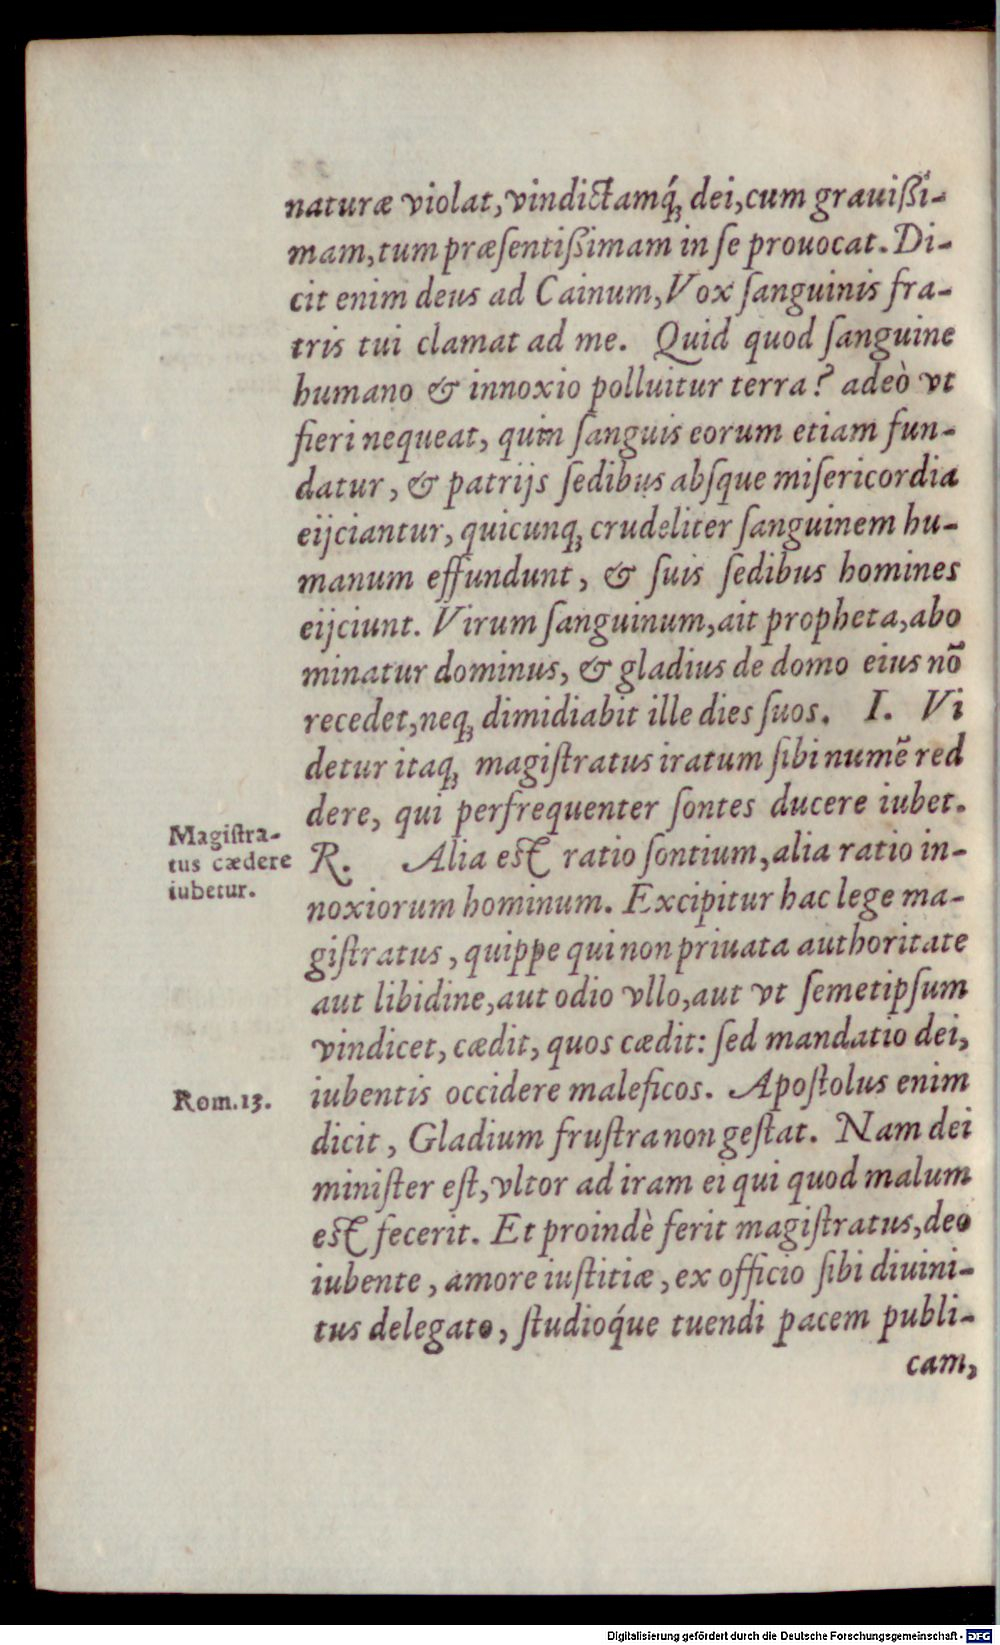 naturæ violat, vindictamq́ꝫ dei, cum grauiſſi-
mam, tum præſentiſſimam in ſe prouocat. Di-
cit enim deus ad Cainum, Vox ſanguinis fra-
tris tui clamat ad me. Quid quod ſanguine
humano & innoxio polluitur terra? adeò vt
fieri nequeat, quin ſanguis eorum etiam fun-
datur, & patrijs ſedibus abſque miſericordia
eijciantur, quicunqꝫ crudeliter ſanguinem hu-
manum effundunt, & ſuis ſedibus homines
eijciunt. Virum ſanguinum, ait propheta, abo
minatur dominus, & gladius de domo eius nō
recedet, neqꝫ dimidiabit ille dies ſuos. I. Vi
detur itaqꝫ magiſtratus iratum ſibi numē red
dere, qui perfrequenter ſontes ducere iubet.
Magiſtra-
tus cædere
iubetur.
R. Alia est ratio ſontium, alia ratio in-
noxiorum hominum. Excipitur hac lege ma-
giſtratus, quippe qui non priuata authoritate
aut libidine, aut odio vllo, aut vt ſemetipſum
vindicet, cædit, quos cædit: ſed mandatio dei,
Rom.13.
iubentis occidere maleficos. Apoſtolus enim
dicit, Gladium fruſtra non geſtat. Nam dei
miniſter eſt, vltor ad iram ei qui quod malum
est fecerit. Et proindè ferit magiſtratus, deo
iubente, amore iuſtitiæ, ex officio ſibi diuini-
tus delegato, ſtudioq́ue tuendi pacem publi-
cam,
Digitalisierung gefördert durch die Deutsche Forschungsgemeinschaft - DFG